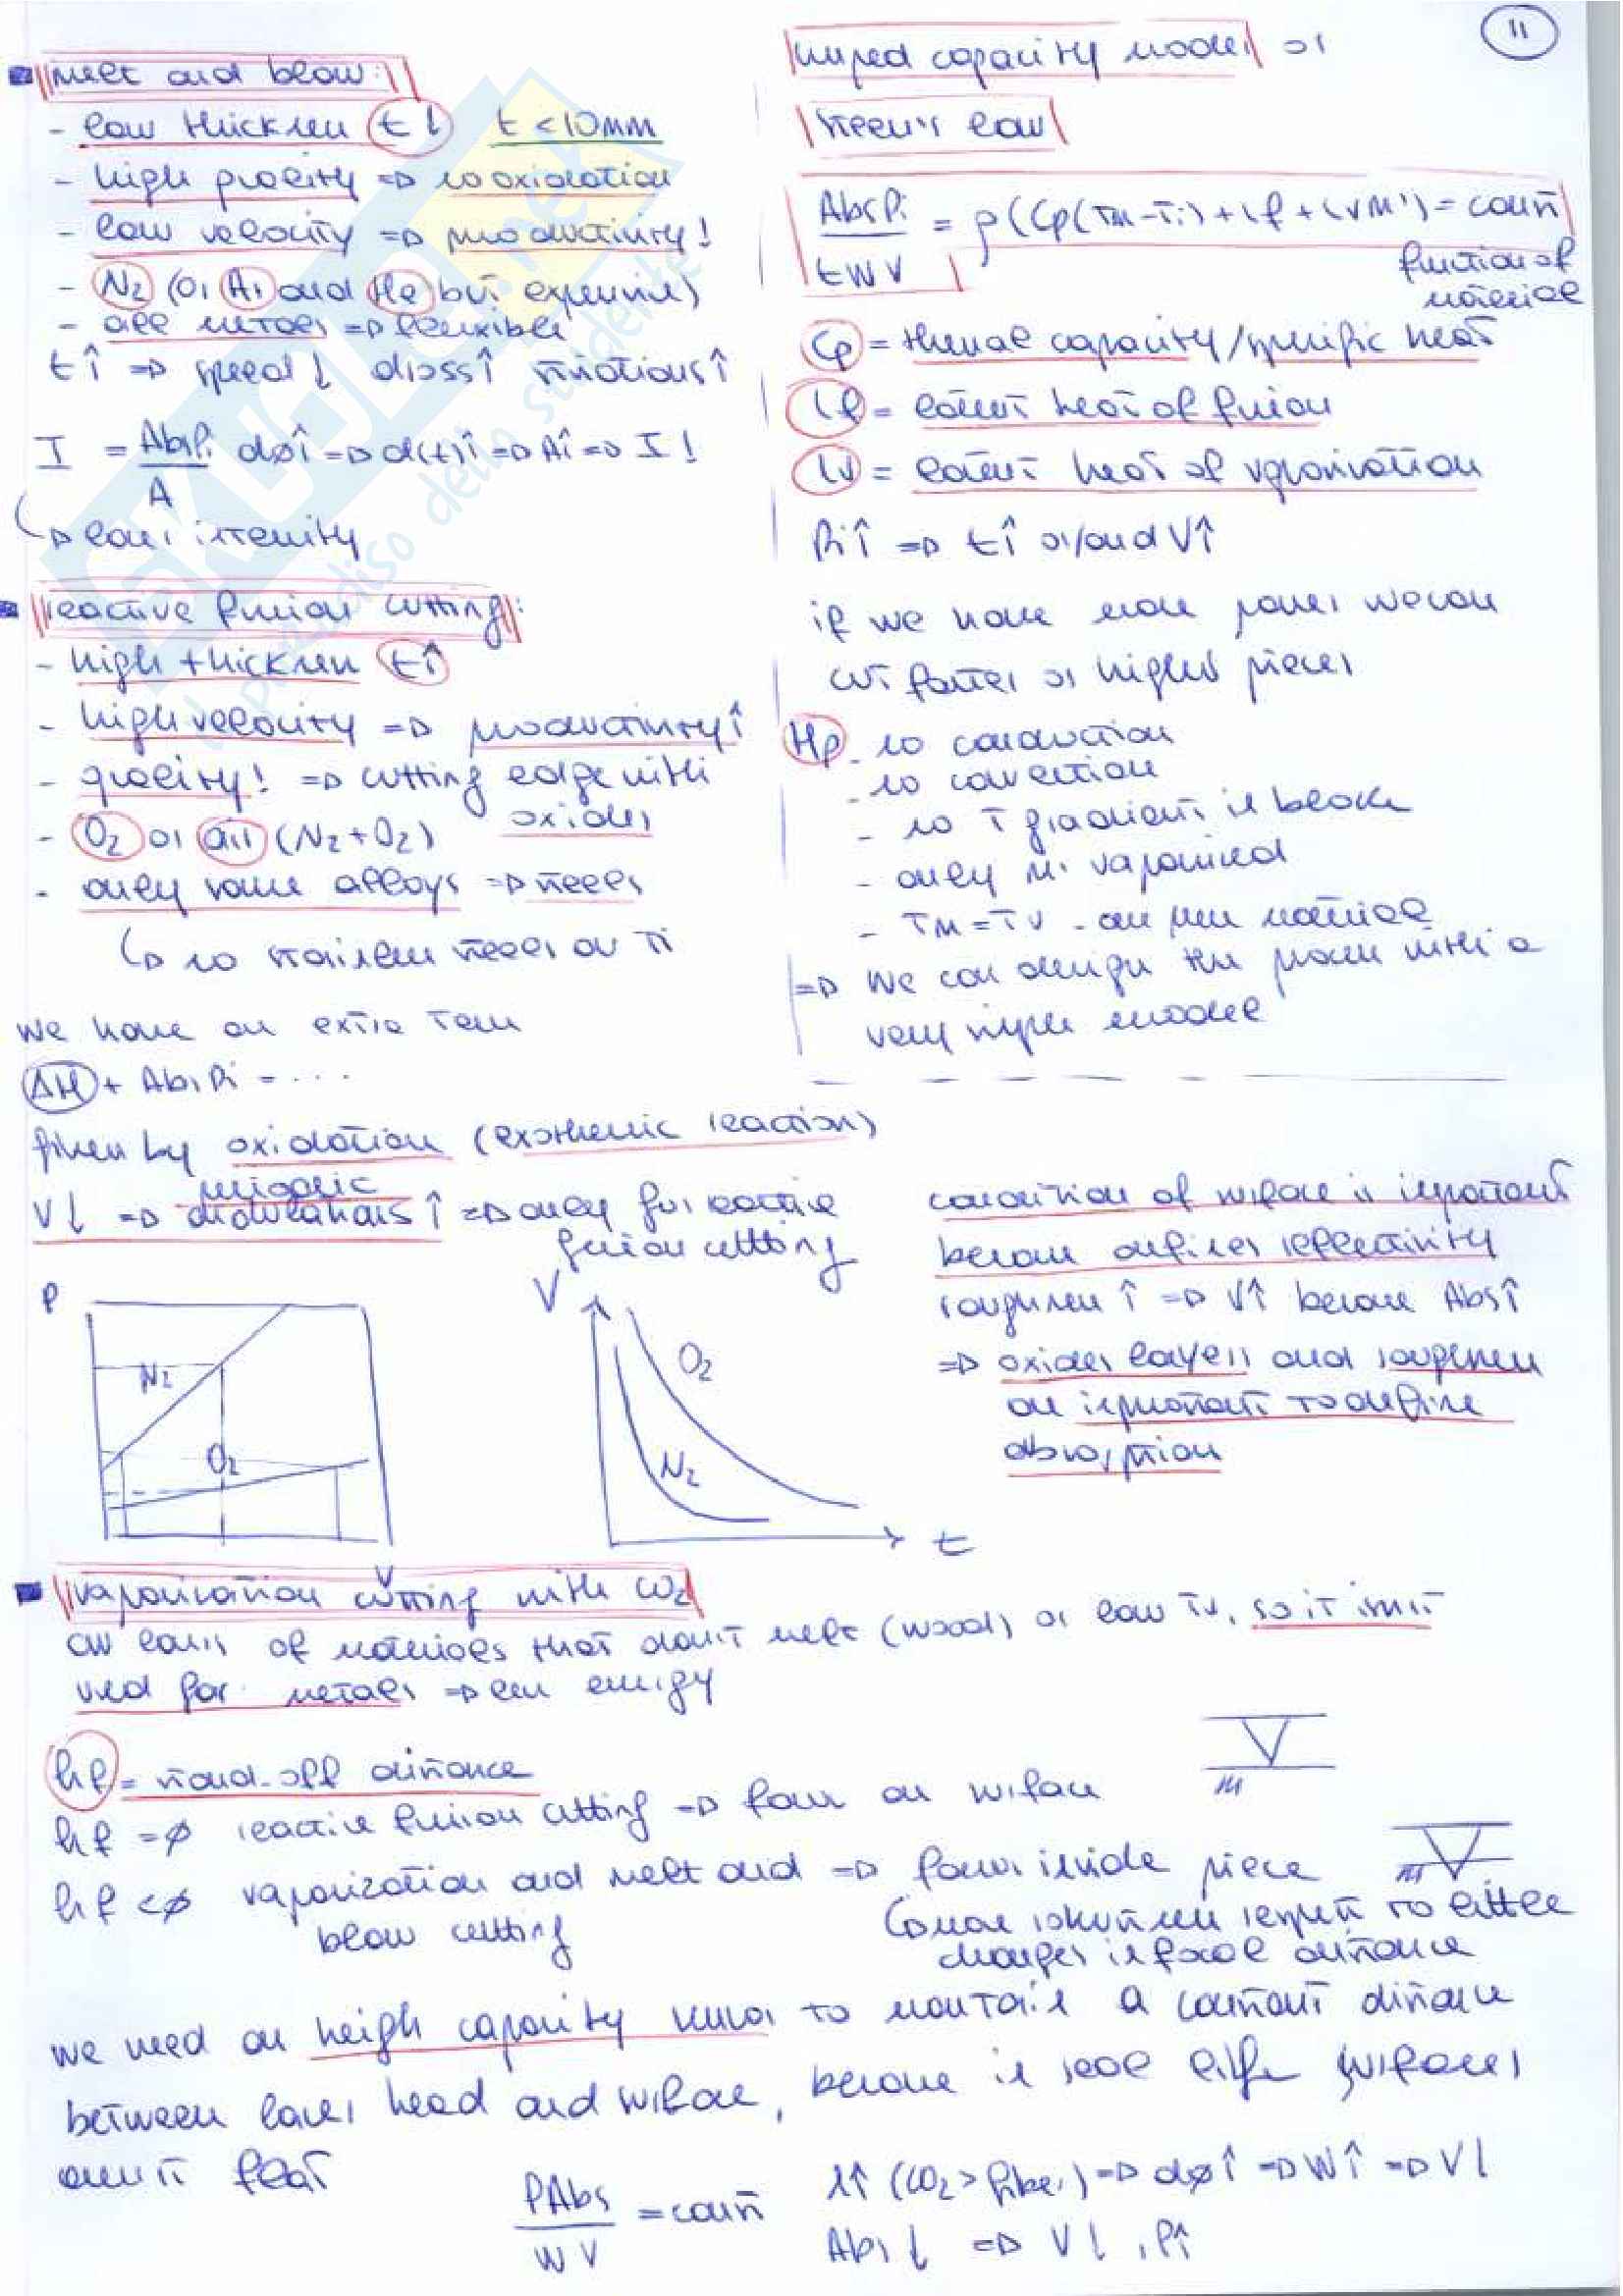 11
melt and blow:
- low thickness t↓ t < 10mm
- high quality => no oxidation
- low velocity => productivity↓
- N2 (or Ar and He but expensive)
- all metals => flexible
t↑ => speed↓ dross↑ striations↑
I = Abs Pi / A d0↑ => d(t)↑ => A↑ => I↓
↳ low intensity
reactive fusion cutting:
- high thickness t↑
- high velocity => productivity↑
- quality↓ => cutting edge with
oxides
- O2 or air (N2+O2)
- only some alloys => steels
↳ no stainless steel or Ti
we have an extra term
ΔH + Abs Pi = ...
given by oxidation (exothermic reaction)
periodic
V↓ => striations↑ => only for reactive
fusion cutting
P
N2
O2
V
V
O2
N2
t
lumped capacity model or
steen's law
Abs Pi / t W V = ρ(Cp(Tm-Ti)+Lf+Lvm') = const
function of
material
Cp = thermal capacity/specific heat
Lf = latent heat of fusion
Lv = latent heat of vaporisation
Pi↑ => t↑ or/and V↑
if we have more power we can
cut faster or higher pieces
Hp - no conduction
- no convection
- no T gradient in block
- only m' vaporised
- Tm = Tv - one per material
=> we can design the process with a
very simple model
condition of surface is important
because defines reflectivity
roughness↑ => V↑ because Abs↑
=> oxides layers and roughness
are important to define
absorption
vaporisation cutting with CO2
on of materials that don't melt (wood) or low Tv, so it isn't
used for metals => energy
hf = stand-off distance
hf = 0 reactive fusion cutting => focus on surface
hf < 0 vaporization and melt and => focus inside piece
blow cutting
more robustness respect to little
changes in focal distance
we need an heigh capacity sensor to mantain a constant distance
between laser head and surface, because in real life surfaces
aren't flat
PAbs / W V = const
λ↑ (CO2 > fiber) => d0↑ => W↑ => V↓
Abs↓ => V↓, P↑
SKUOLA.net
il paradiso dello studente